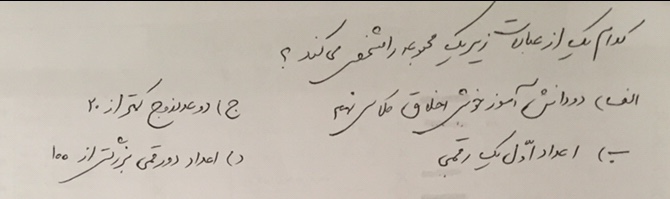 کدام یک از عبارات زیر یک مجموعه را مشخص می کند ؟
الف) دو دانش آموز خوش اخلاق کلاس نهم ج) دو عدد زوج کمتر از ۲۰
ب) اعداد اول یک رقمی د) اعداد دو رقمی بزرگتر از ۱۰۰